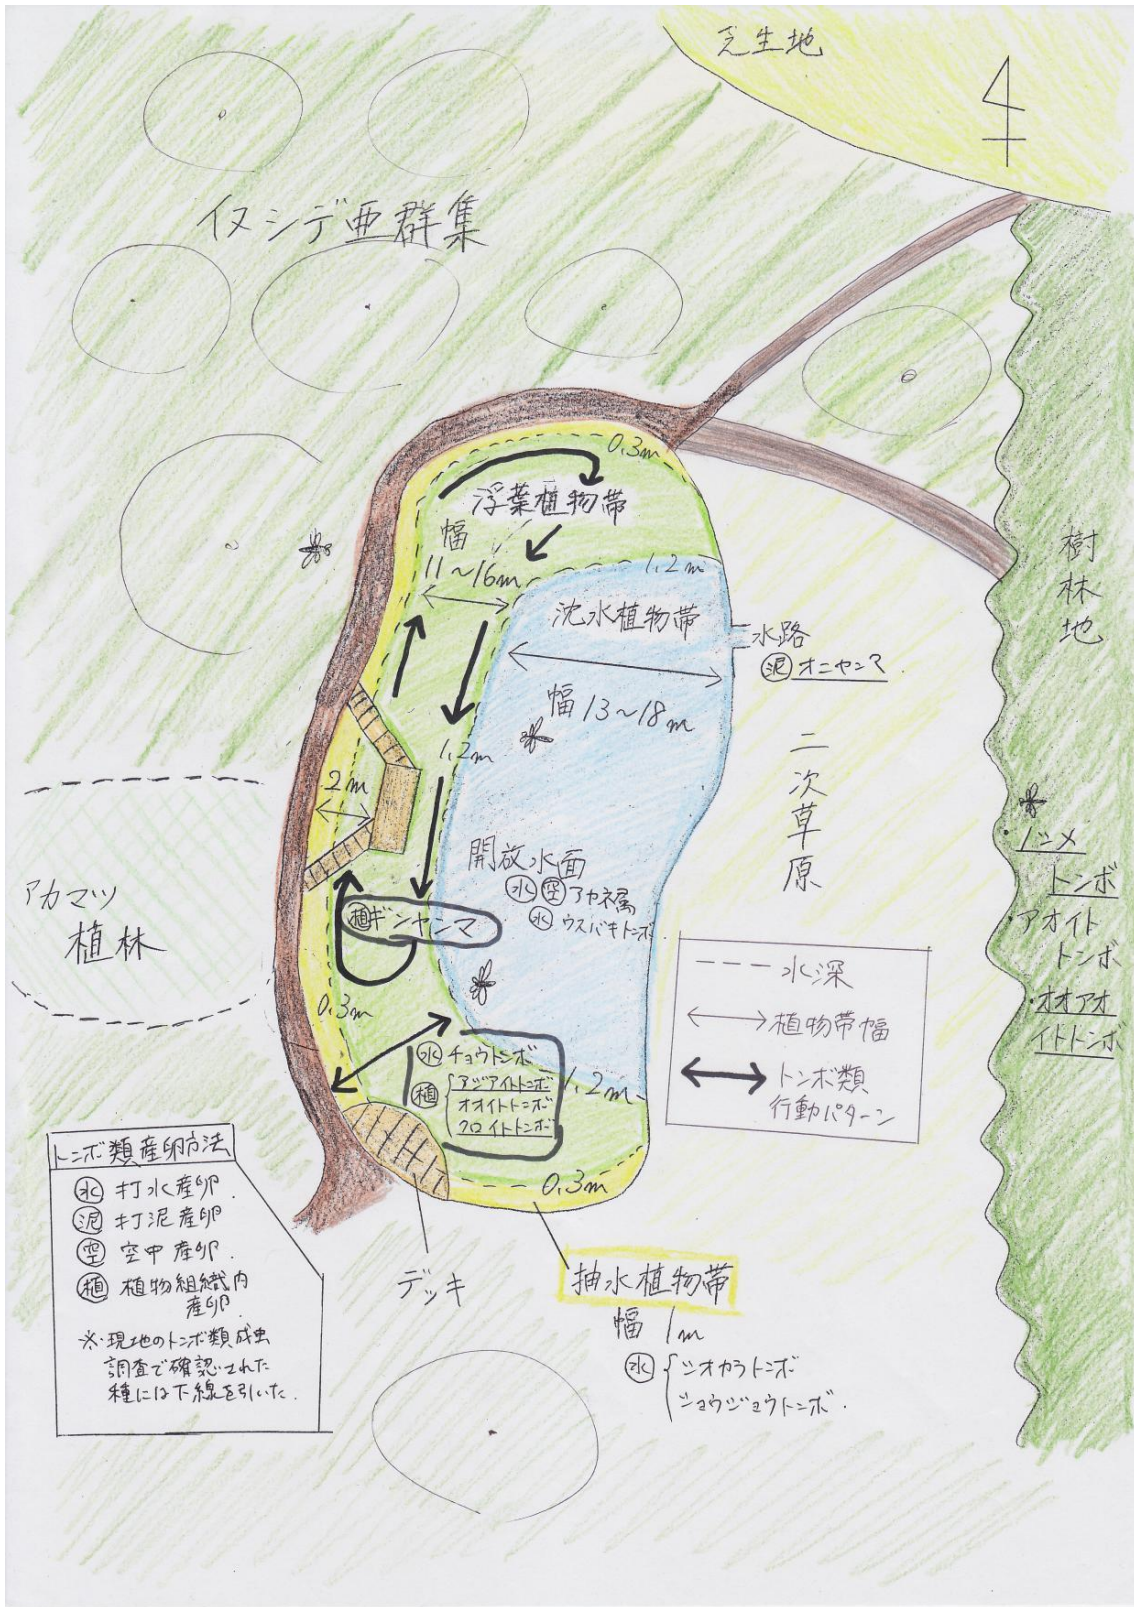 芝生地
イヌシデ亜群集
0.3m
浮葉植物帯
幅
11~16m
1.2m
沈水植物帯
水路
泥 オニヤンマ
樹林地
幅 13~18m
1.2m
2m
二次草原
開放水面
水 空 アカネ属
水 ウスバキトンボ.
・ノシメ
トンボ
・アオイト
トンボ
・オオアオ
イトトンボ
アカマツ
植林
植 ギンヤンマ
0.3m
水 チョウトンボ
植 アジアイトトンボ
オオイトトンボ
クロイトトンボ
1.2m
0.3m
水深
植物帯幅
トンボ類
行動パターン
トンボ類産卵方法
水 打水産卵.
泥 打泥産卵
空 空中産卵.
植 植物組織内
産卵.
※現地のトンボ類成虫
調査で確認された
種には下線を引いた.
デッキ
抽水植物帯
幅 1m
水 シオカラトンボ
ショウジョウトンボ.